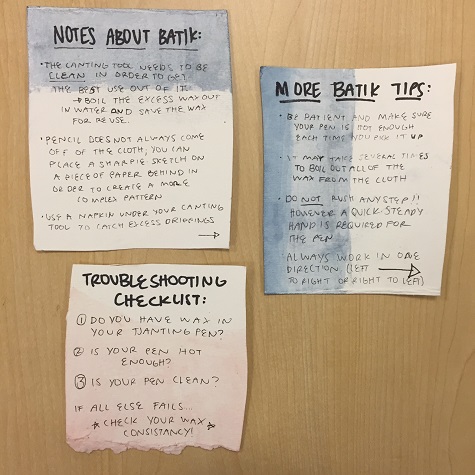 NOTES ABOUT BATIK:
• THE CANTING TOOL NEEDS TO BE
CLEAN IN ORDER TO GET
THE BEST USE OUT OF IT.
→ BOIL THE EXCESS WAX OUT
IN WATER AND SAVE THE WAX
FOR REUSE.
• PENCIL DOES NOT ALWAYS COME
OFF OF THE CLOTH; YOU CAN
PLACE A SHARPIE SKETCH ON
A PIECE OF PAPER BEHIND IN
ORDER TO CREATE A MORE
COMPLEX PATTERN
• USE A NAPKIN UNDER YOUR CANTING
TOOL TO CATCH EXCESS DRIPPINGS
→
MORE BATIK TIPS:
• BE PATIENT AND MAKE SURE
YOUR PEN IS HOT ENOUGH
EACH TIME YOU PICK IT UP
• IT MAY TAKE SEVERAL TIMES
TO BOIL OUT ALL OF THE
WAX FROM THE CLOTH
• DO NOT RUSH ANY STEP!!
HOWEVER A QUICK-STEADY
HAND IS REQUIRED FOR
THE PEN
• ALWAYS WORK IN ONE
DIRECTION, (LEFT →
TO RIGHT OR RIGHT TO LEFT)
TROUBLESHOOTING
CHECKLIST:
① DO YOU HAVE WAX IN
YOUR TJANTING PEN?
② IS YOUR PEN HOT
ENOUGH?
③ IS YOUR PEN CLEAN?
IF ALL ELSE FAILS...
* CHECK YOUR WAX *
CONSISTANCY!